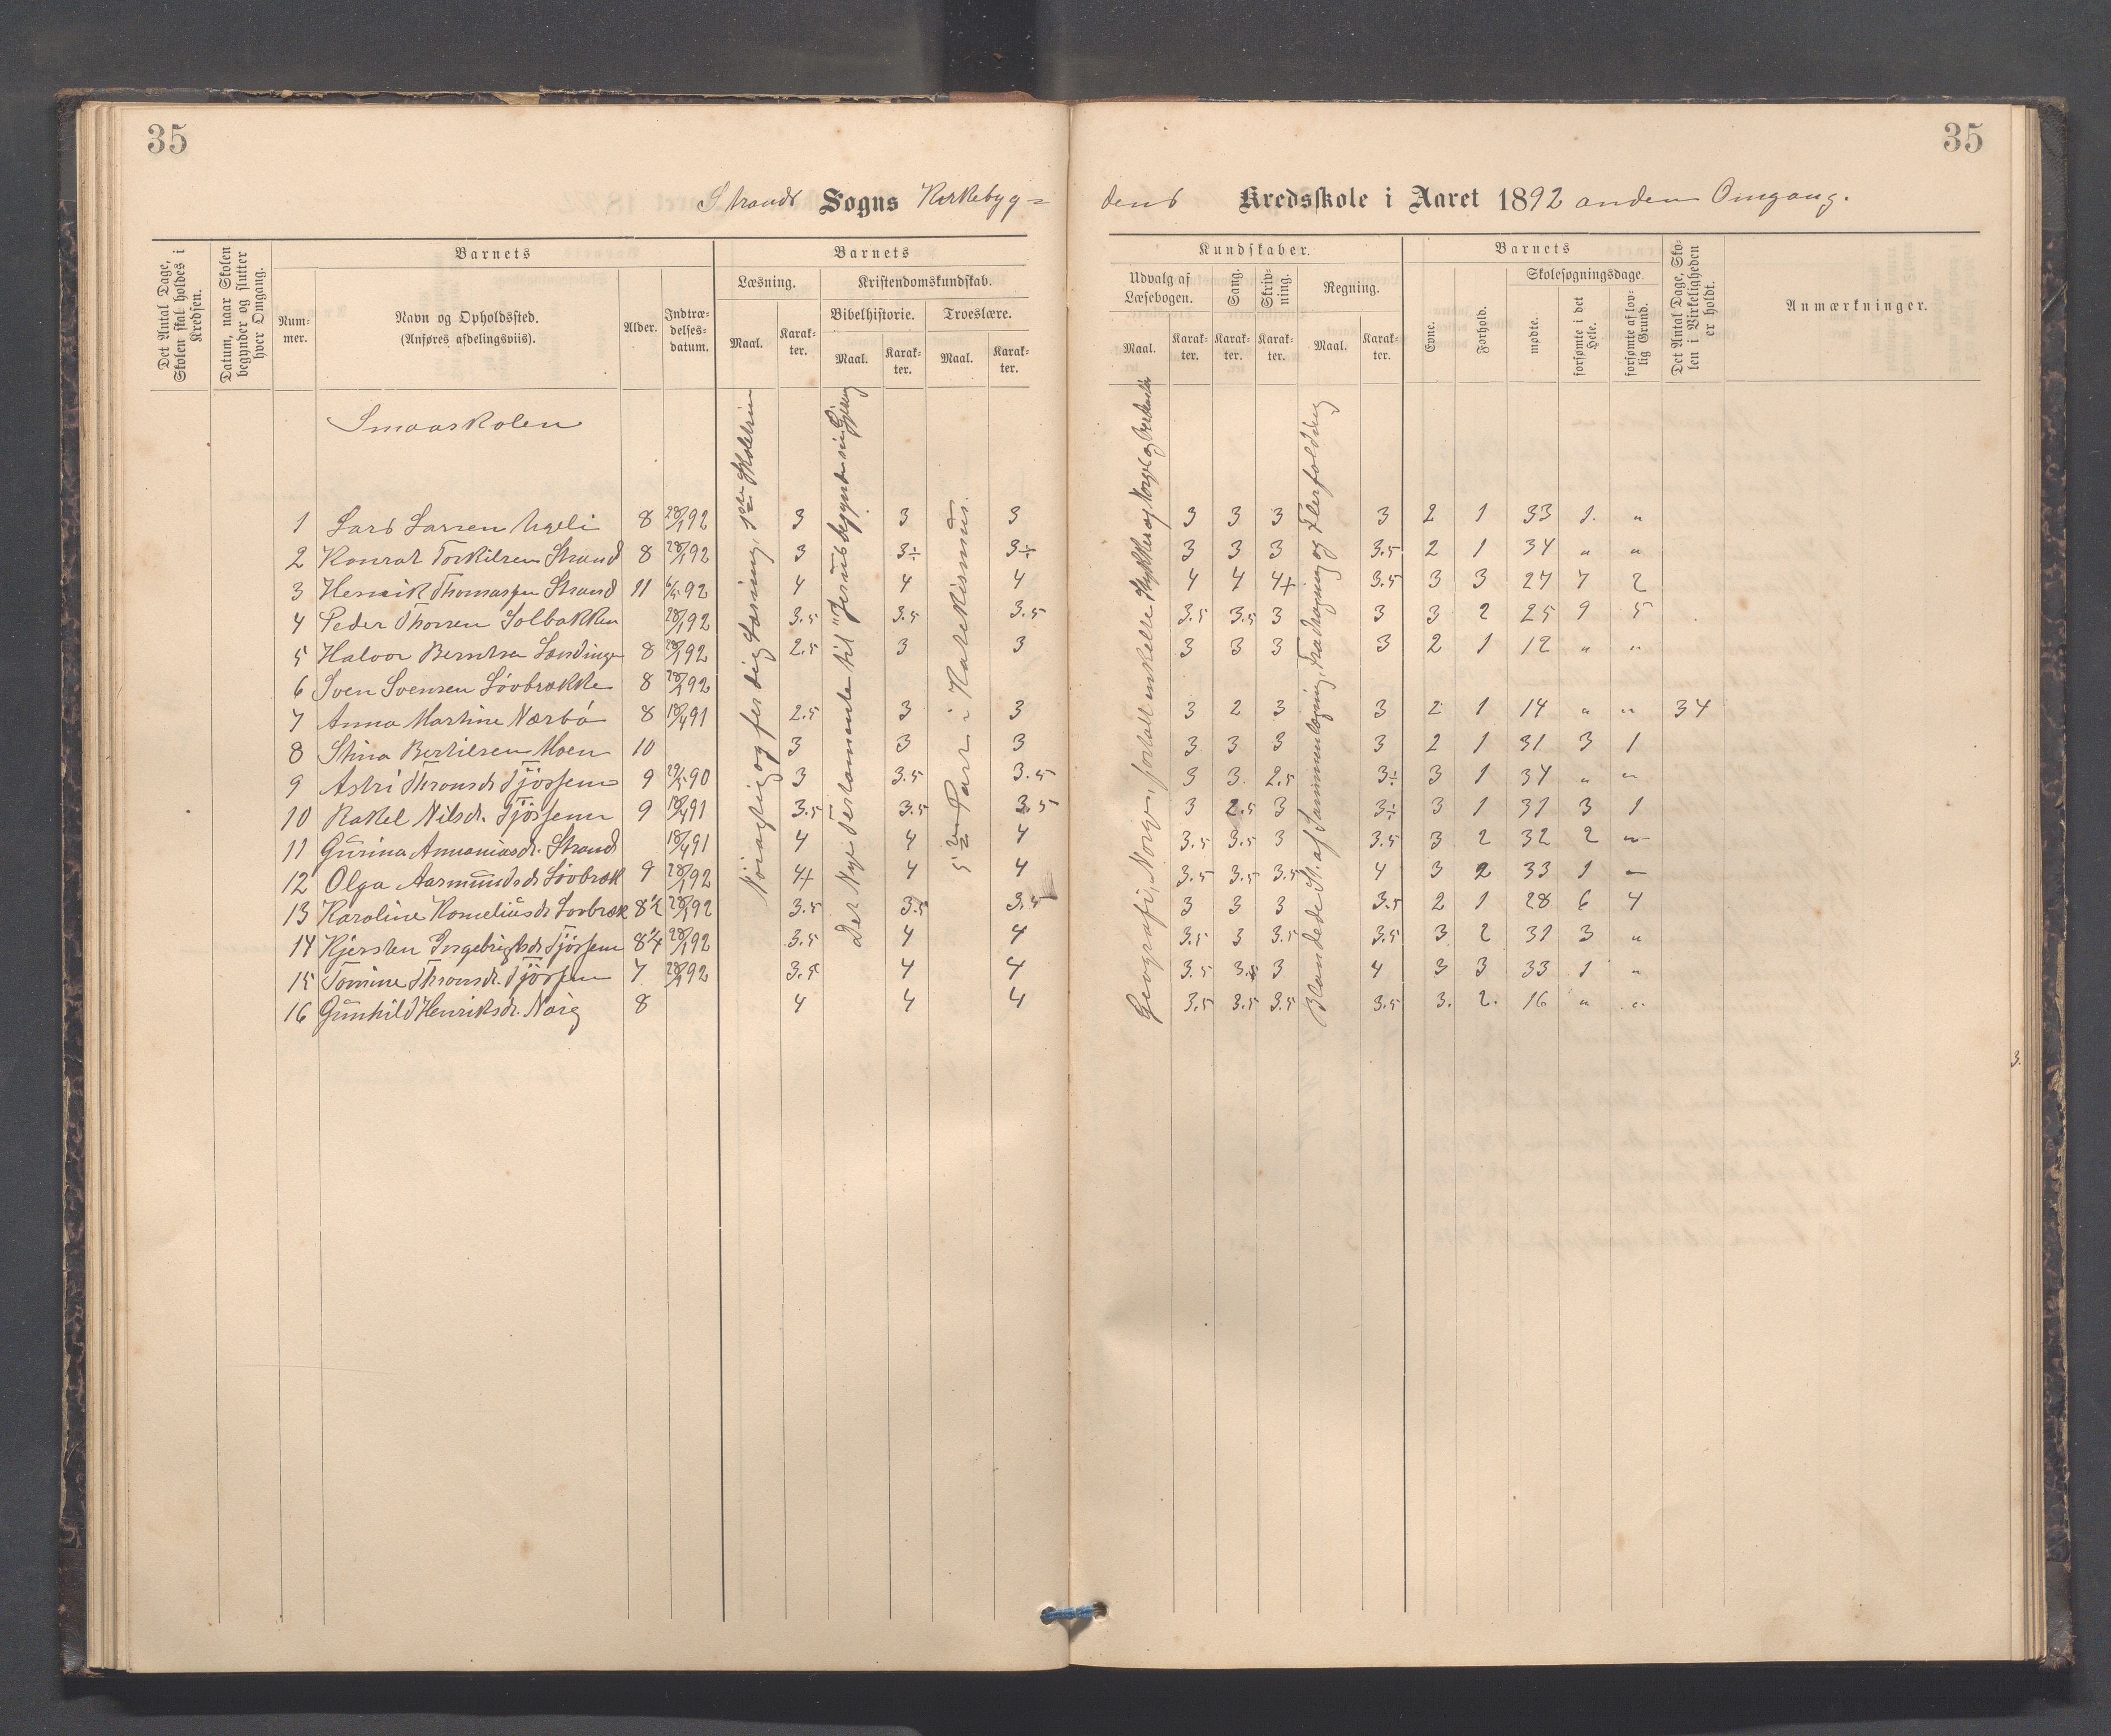 35
35
Strands Sogns Kirkebyg=
dens Kredsskole i Aaret 1892 anden Omgang.
Det Antal Dage, Skolen skal holdes i Kredsen.
Datum, naar Skolen begynder og slutter hver Omgang.
Barnets
Num-mer.
Navn og Opholdssted. (Anføres afdelingsviis).
Alder.
Indtræ-delses-datum.
Barnets
Læsning.
Maal.
Karak-ter.
Kristendomskundskab.
Bibelhistorie.
Maal.
Karak-ter.
Troeslære.
Maal.
Karak-ter.
Kundskaber.
Udvalg af Læsebogen.
Maal.
Karak-ter.
Sang.
Karak-ter.
Skriv-ning.
Karak-ter.
Regning.
Maal.
Karak-ter.
Barnets
Evne.
Forhold.
Skolesøgningsdage.
mødte.
forsømte i det Hele.
forsømte af lov-lig Grund.
Det Antal Dage, Sko-len i Virkeligheden er holdt.
Anmærkninger.
Smaaskolen
Nöiagtig og ferdig Læsning,
Det Nye Testamente til "Jesus begynder sin Gjerning
5te Part i Katekismus.
Geografi, Norge, fortalt enkelte Stykker af Norges
Blandede St. af Sammenlægning, Fradragning og Flerfoldning
1 Lars Larsen 8 28/1 92 3 3 3 3 3 3 3 2 1 33 1. "
2 Konrat Torkilsen Strand 8 28/1 92 3 3÷ 3÷ 3 3 3 3.5 2 1 34 " "
3 Henrik Thomassen Strand 11 6/5 92 4 4 4 4 4 4+ 3.5 3 3 27 7 2
4 Peder Thorsen Solbakken 28/1 92 3.5 3.5 3.5 3.5 3.5 3 3 3 2 25 9 5
5 Halvor Berntsen 8 28/1 92 2.5 3 3 3 3 3 3 2 1 12 " "
6 Sven Svensen Lövbrække 8 28/1 92
7 Anna Martine Nærbö 8 18/4 91 2.5 3 3 3 2 3 3 2 1 14 " " 34
8 Stina Bertilsen Moen 10 3 3 3 3 3 3 3 2 1 31 3 1
9 Astri Thronsdr Tjössem 9 29/5 90 3 3.5 3.5 3 3. 2.5 3÷ 3 1 34 " "
10 Rakel Nilsdr. Tjössem 9 18/4 91 3.5 3.5 3.5 3 2.5 3 3÷ 3 1 31 3 1
11 Gurina Annaniasdr. Strand 18/4 91 4 4 4 3.5 3.5 3 3.5 3 2 32 2 "
12 Olga Aasmundsdr Lövbræk 9 28/1 92 4+ 4 4 3.5 3.5 3.5 4 3 2 33 1 "
13 Karoline Korneliusdr Lovbræk 8½ 28/1 92 3.5 3.5 3.5 3 3 3 3.5 2 1 28 6 4
14 Kjersten Ingebrigtsdr Tjössem 8¼ 28/1 92 3.5 4 4 3.5 3 3.5 3.5 3 2 31 3 "
15 Tomine Thronsdr. Tjössem 7 28/1 92 3.5 4 4 3.5 3.5 3 4 3 3 33 1 "
16 Gunhild Henriksdr. Nörg 8 4 4 4 3.5 3.5 3.5 3.5 3. 2. 16 " "
3.